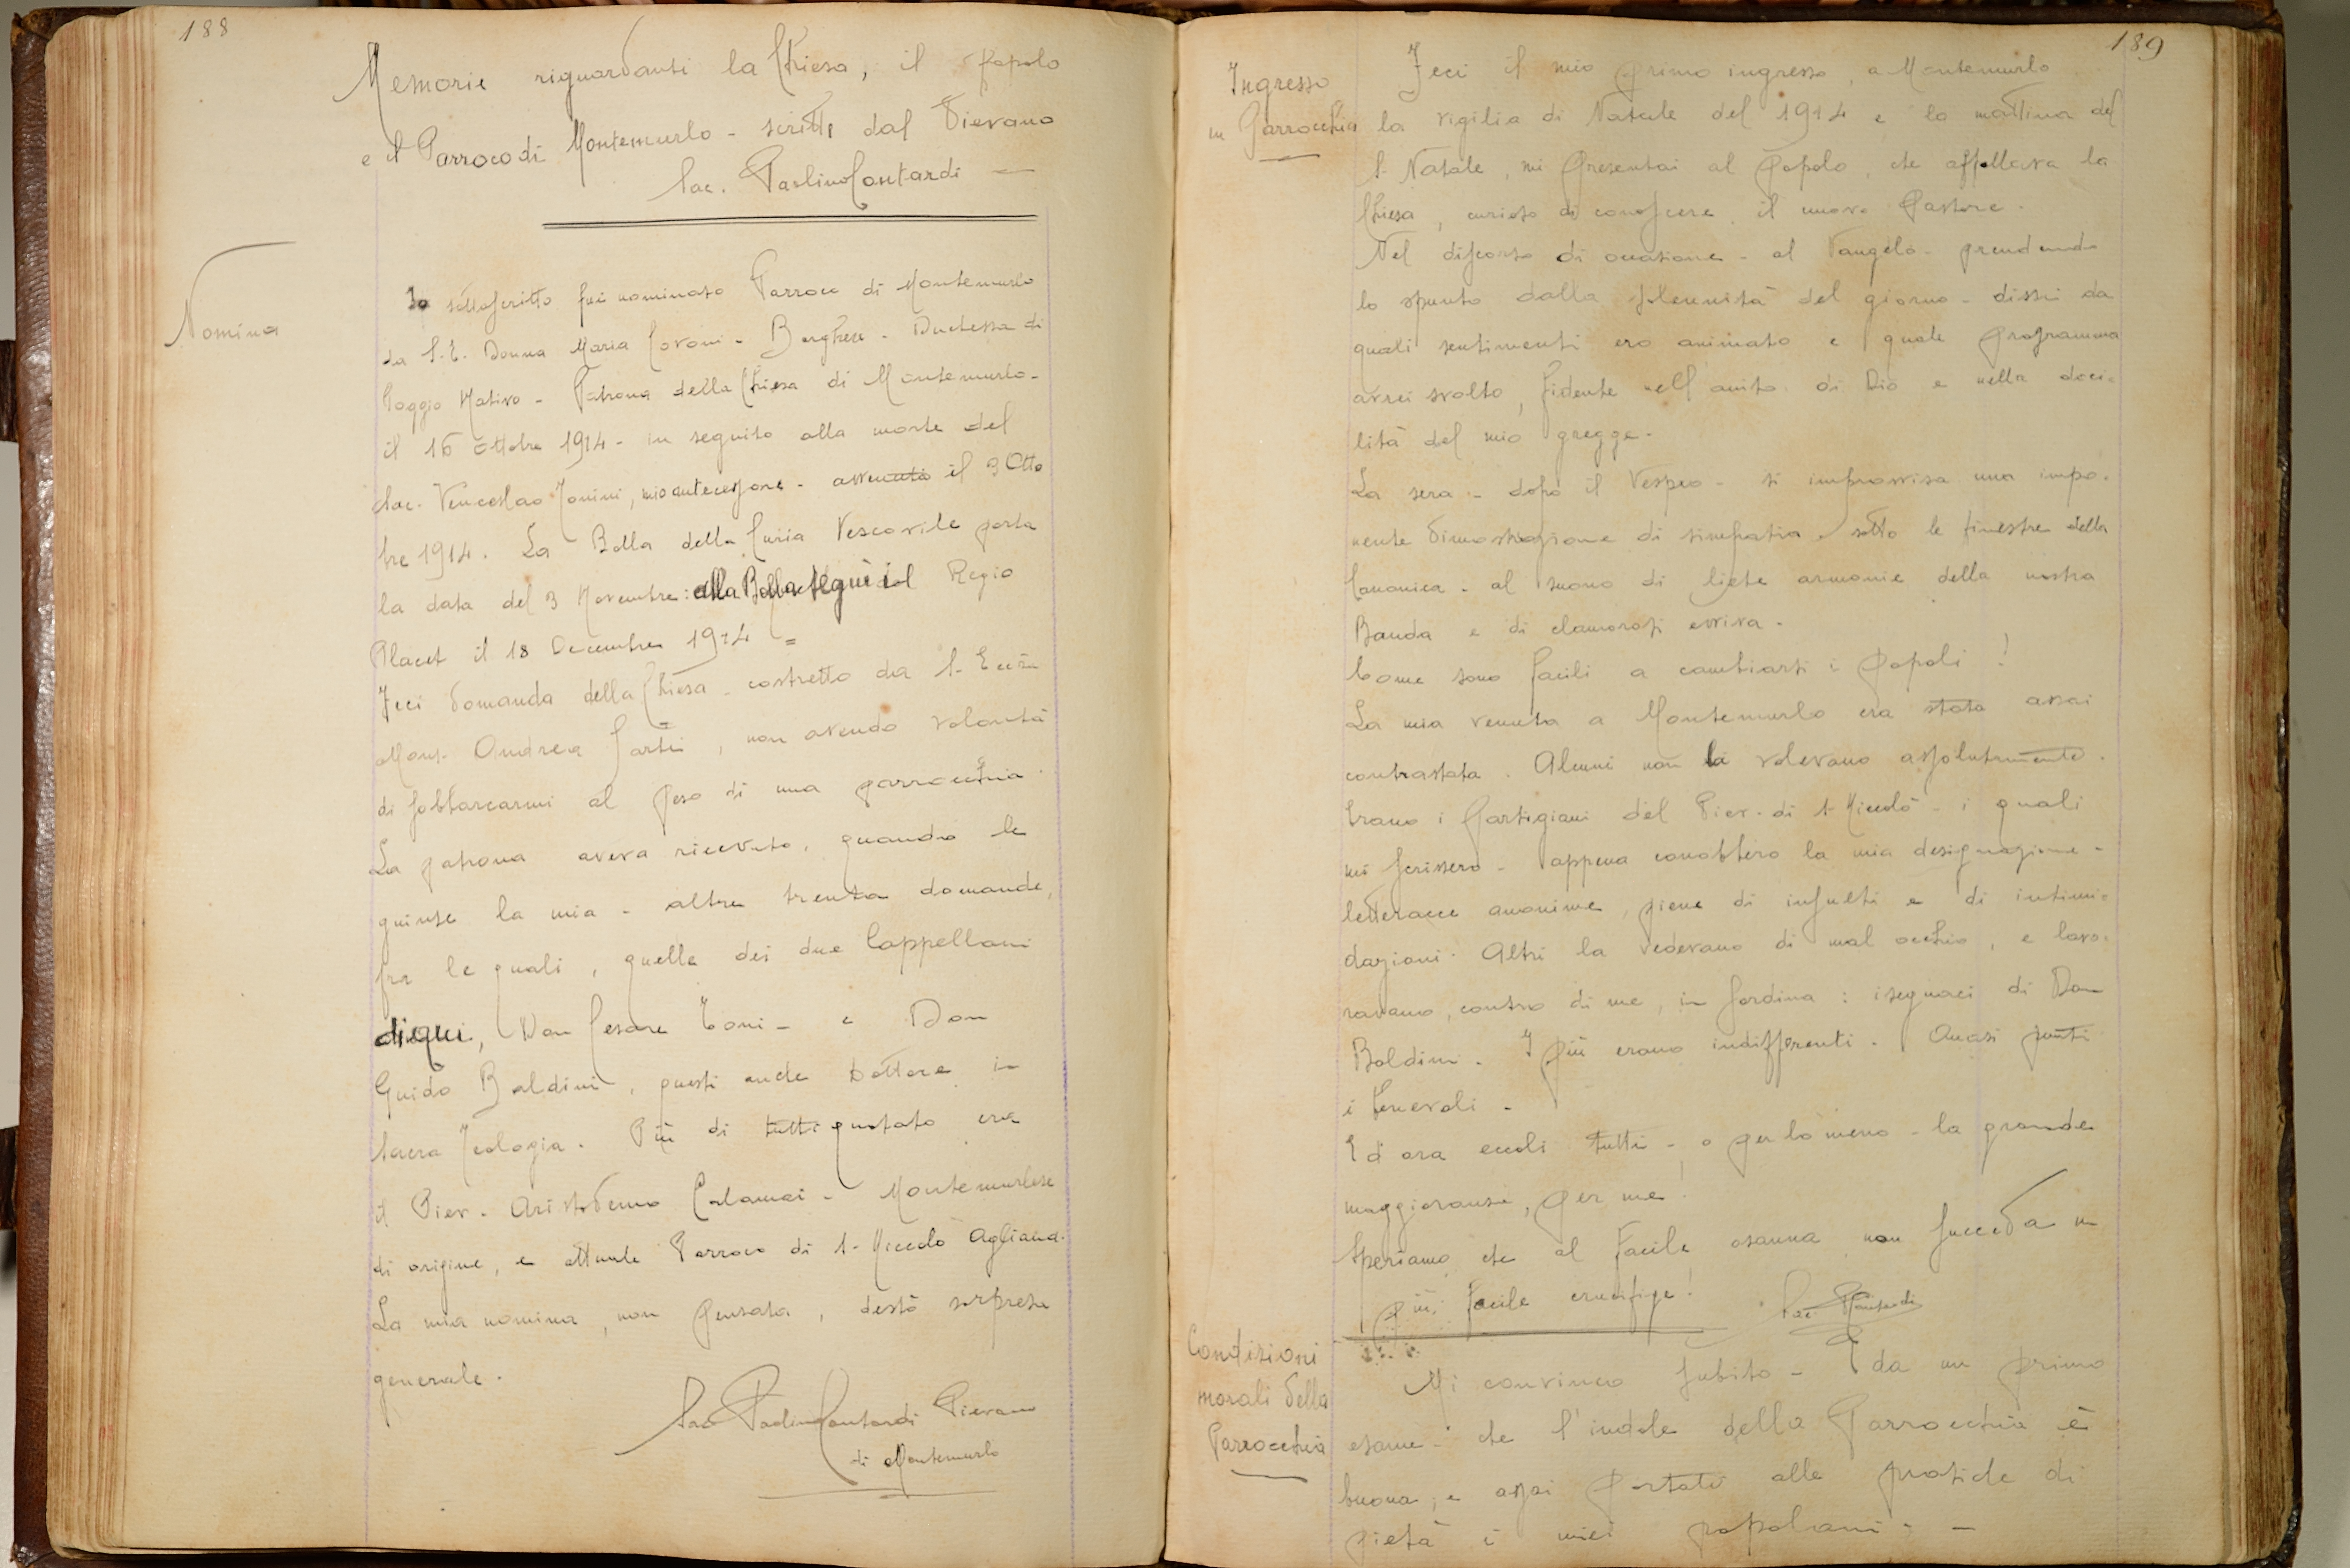 188
Memorie riguardanti la Chiesa, il popolo
e il Parroco di Montemurlo - scritte dal Pievano
Sac. Paolino Contardi -
Nomina
Io sottoscritto fui nominato Parroco di Montemurlo
da S. E. Donna Maria Covoni - Borghese - Duchessa di
Poggio Nativo - Patrona della Chiesa di Montemurlo -
il 16 Ottobre 1914 - in seguito alla morte del
Sac. Venceslao Tonini, mio antecessore - avvenuta il 3 Otto
bre 1914. La Bolla della Curia Vescovile porta
la data del 3 Novembre: alla Bolla seguì il Regio
Placet il 18 Decembre 1914 =
Feci domanda della Chiesa - costretto da S. Eccza
Mons. Andrea Sarti, non avendo volontà
di sobbarcarmi al peso di una parrocchia.
La patrona aveva ricevuto, quando le
giunse la mia - altre trenta domande,
fra le quali, quelle dei due Cappellani
di qui, Don Cesare Toni - e Don
Guido Baldini, questi anche Dottore in
Sacra Teologia. Più di tutti quotato era
il Piev. Aristodemo Calamai - Montemurlese
di origine, e attuale Parroco di S. Niccolò Agliana.
La mia nomina, non pensata, destò sorpresa
generale.
Sac. Paolino Contardi Pievano
di Montemurlo
189
Ingresso
in Parrocchia
Feci il mio primo ingresso, a Montemurlo
la vigilia di Natale del 1914 e la mattina del
S. Natale, mi presentai al popolo, che affollava la
Chiesa, curioso di conoscere il nuovo Pastore.
Nel discorso di occasione - al Vangelo - prendendo
lo spunto dalla solennità del giorno - dissi da
quali sentimenti ero animato e quale programma
avrei svolto, fidente nell'aiuto di Dio e nella doci=
lità del mio gregge.
La sera - dopo il Vespro - si improvvisa una impo=
nente dimostrazione di simpatia, sotto le finestre della
Canonica - al suono di liete armonie della nostra
Banda e di clamorosi evviva.
Come sono facili a cambiarsi i popoli!
La mia venuta a Montemurlo era stata assai
contrastata. Alcuni non la volevano assolutamente.
Erano i partigiani del Piev. di S. Niccolò - i quali
mi scrissero - appena conobbero la mia designazione -
letteracce anonime, piene di insulti e di intimi=
dazioni. Altri la vedevano di mal occhio, e lavo=
ravano, contro di me, in sordina: i seguaci di Don
Baldini. I più erano indifferenti. Quasi punti
i benevoli.
Ed ora eccoli tutti - o per lo meno - la grande
maggioranza, per me!
Speriamo che al facile osanna non succeda un
più facile crucifige! Sac. PContardi
Condizioni
morali della
Parrocchia
Mi convinco subito - da un primo
esame - che l'indole della Parrocchia è
buona, e assai portati alle pratiche di
pietà i miei popolani. -